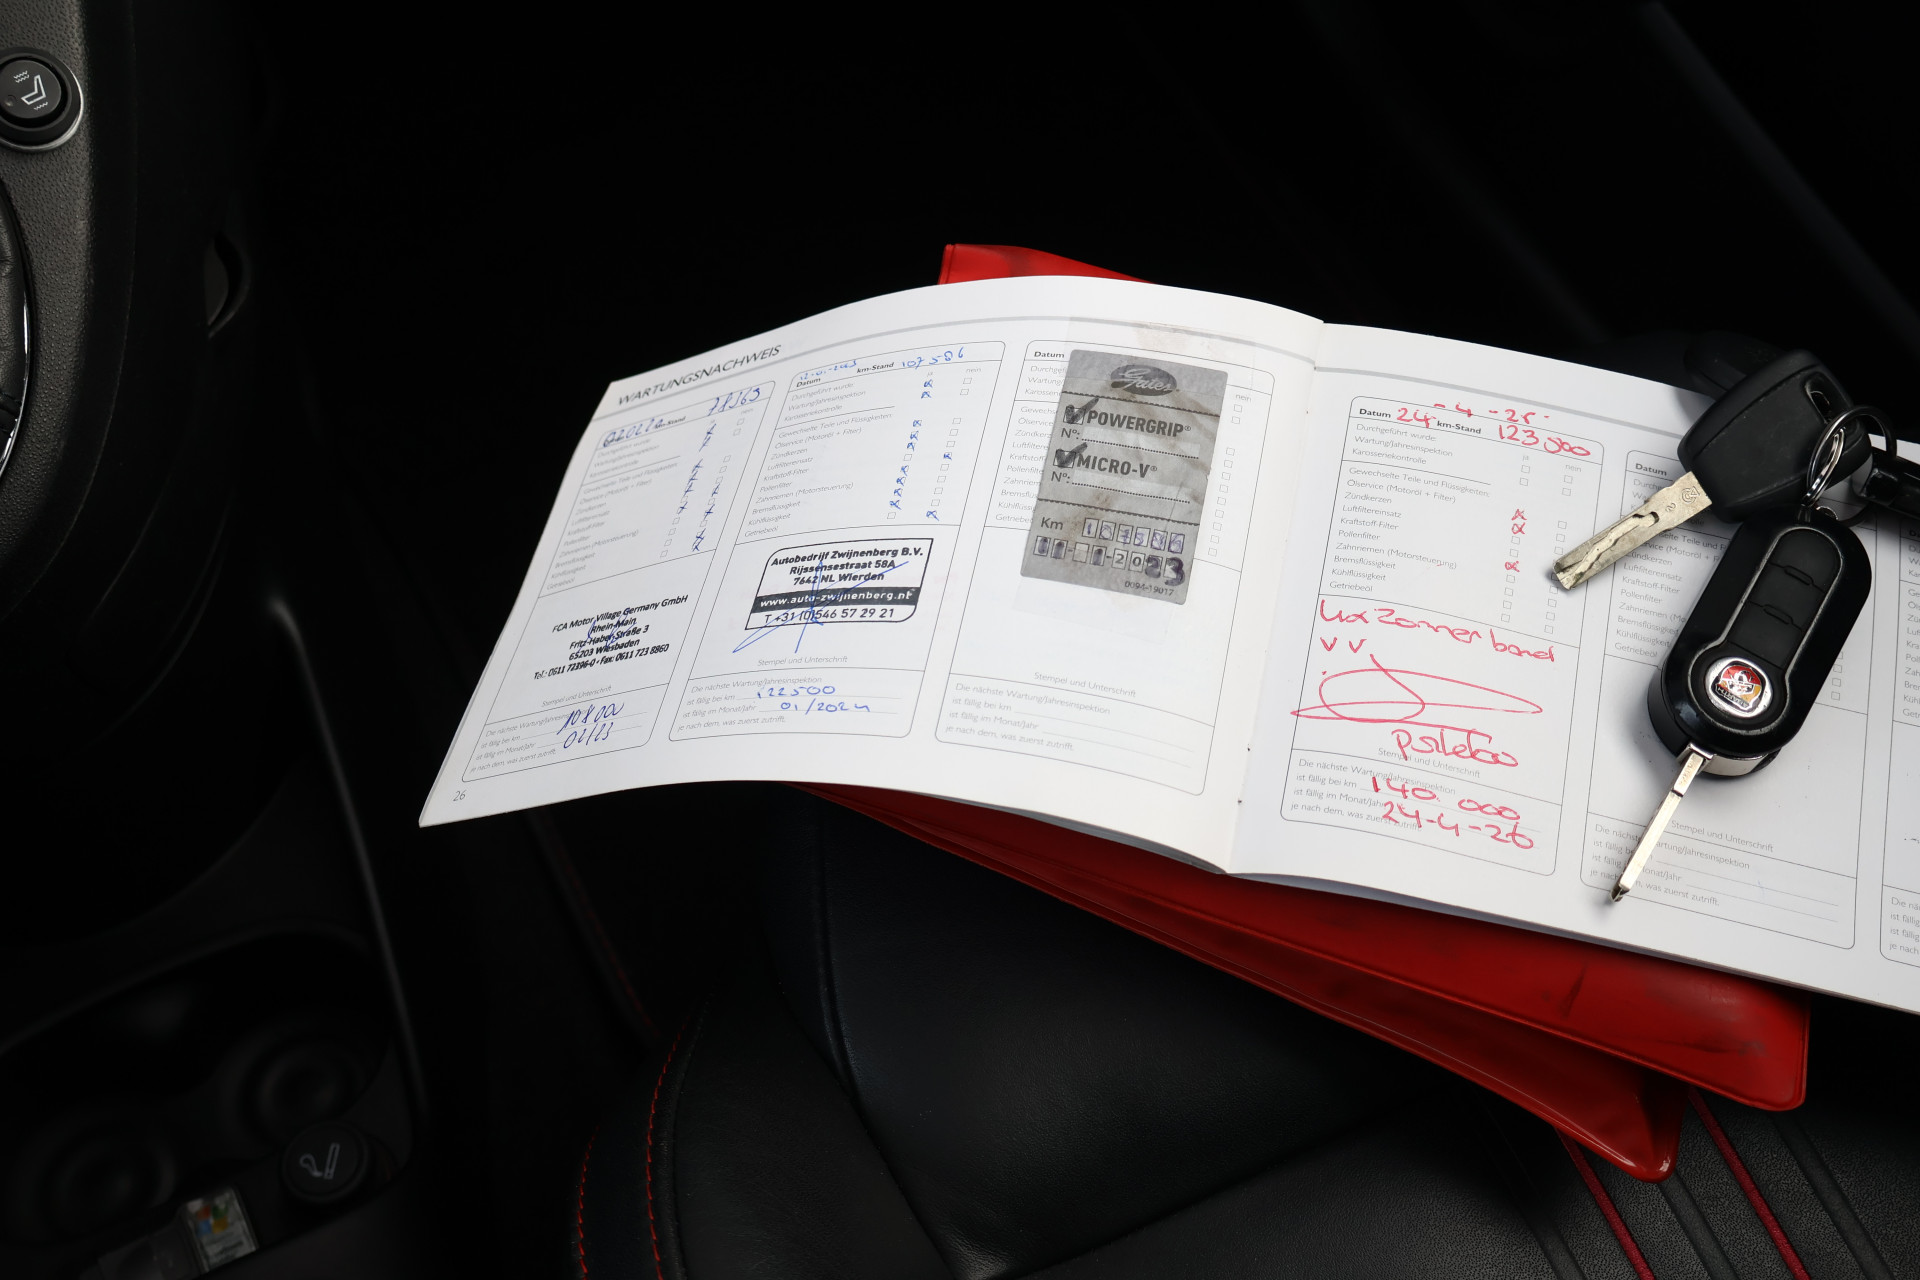 WARTUNGSNACHWEIS
km-Stand 78563
Durchgeführt wurde:
Wartung/Jahresinspektion
Karosseriekontrolle
Gewechselte Teile und Flüssigkeiten:
Ölservice (Motoröl + Filter)
Zündkerzen
Luftfiltereinsatz
Kraftstoff-Filter
Pollenfilter
Zahnriemen (Motorsteuerung)
Bremsflüssigkeit
Kühlflüssigkeit
Getriebeöl
FCA Motor Village Germany GmbH
Rhein-Main
Fritz-Haber-Straße 3
65203 Wiesbaden
Tel.: 0611 72396-0 • Fax: 0611 723 8860
Stempel und Unterschrift
Die nächste Wartung/Jahresinspektion
ist fällig bei km 108000
ist fällig im Monat/Jahr 02/23
je nach dem, was zuerst zutrifft.
26
Datum 12-01-2023 km-Stand 107586
ja nein
Durchgeführt wurde:
Wartung/Jahresinspektion
Karosseriekontrolle
Gewechselte Teile und Flüssigkeiten:
Ölservice (Motoröl + Filter)
Zündkerzen
Luftfiltereinsatz
Kraftstoff-Filter
Pollenfilter
Zahnriemen (Motorsteuerung)
Bremsflüssigkeit
Kühlflüssigkeit
Getriebeöl
Autobedrijf Zwijnenberg B.V.
Rijssensestraat 58A
7642 NL Wierden
www.auto-zwijnenberg.nl
T +31 (0)546 57 29 21
Stempel und Unterschrift
Die nächste Wartung/Jahresinspektion
ist fällig bei km 122500
ist fällig im Monat/Jahr 01/2024
je nach dem, was zuerst zutrifft.
Datum
nein
Gates
POWERGRIP®
Nº:
MICRO-V®
Nº:
Km 107586
2023
0094-19017
Stempel und Unterschrift
Die nächste Wartung/Jahresinspektion
ist fällig bei km
ist fällig im Monat/Jahr
je nach dem, was zuerst zutrifft.
Datum 24-4-25 km-Stand 123000
ja nein
Durchgeführt wurde:
Wartung/Jahresinspektion
Karosseriekontrolle
Gewechselte Teile und Flüssigkeiten:
Ölservice (Motoröl + Filter)
Zündkerzen
Luftfiltereinsatz
Kraftstoff-Filter
Pollenfilter
Zahnriemen (Motorsteuerung)
Bremsflüssigkeit
Kühlflüssigkeit
Getriebeöl
4x Zomerband
VV
Stempel und Unterschrift
Die nächste Wartung/Jahresinspektion
ist fällig bei km 140.000
ist fällig im Monat/Jahr 24-4-26
je nach dem, was zuerst zutrifft.
Datum
Stempel und Unterschrift
Die nächste Wartung/Jahresinspektion
ist fällig
je nach dem, was zuerst zutrifft.
Die nä
ist fällig
ist fällig
je nach